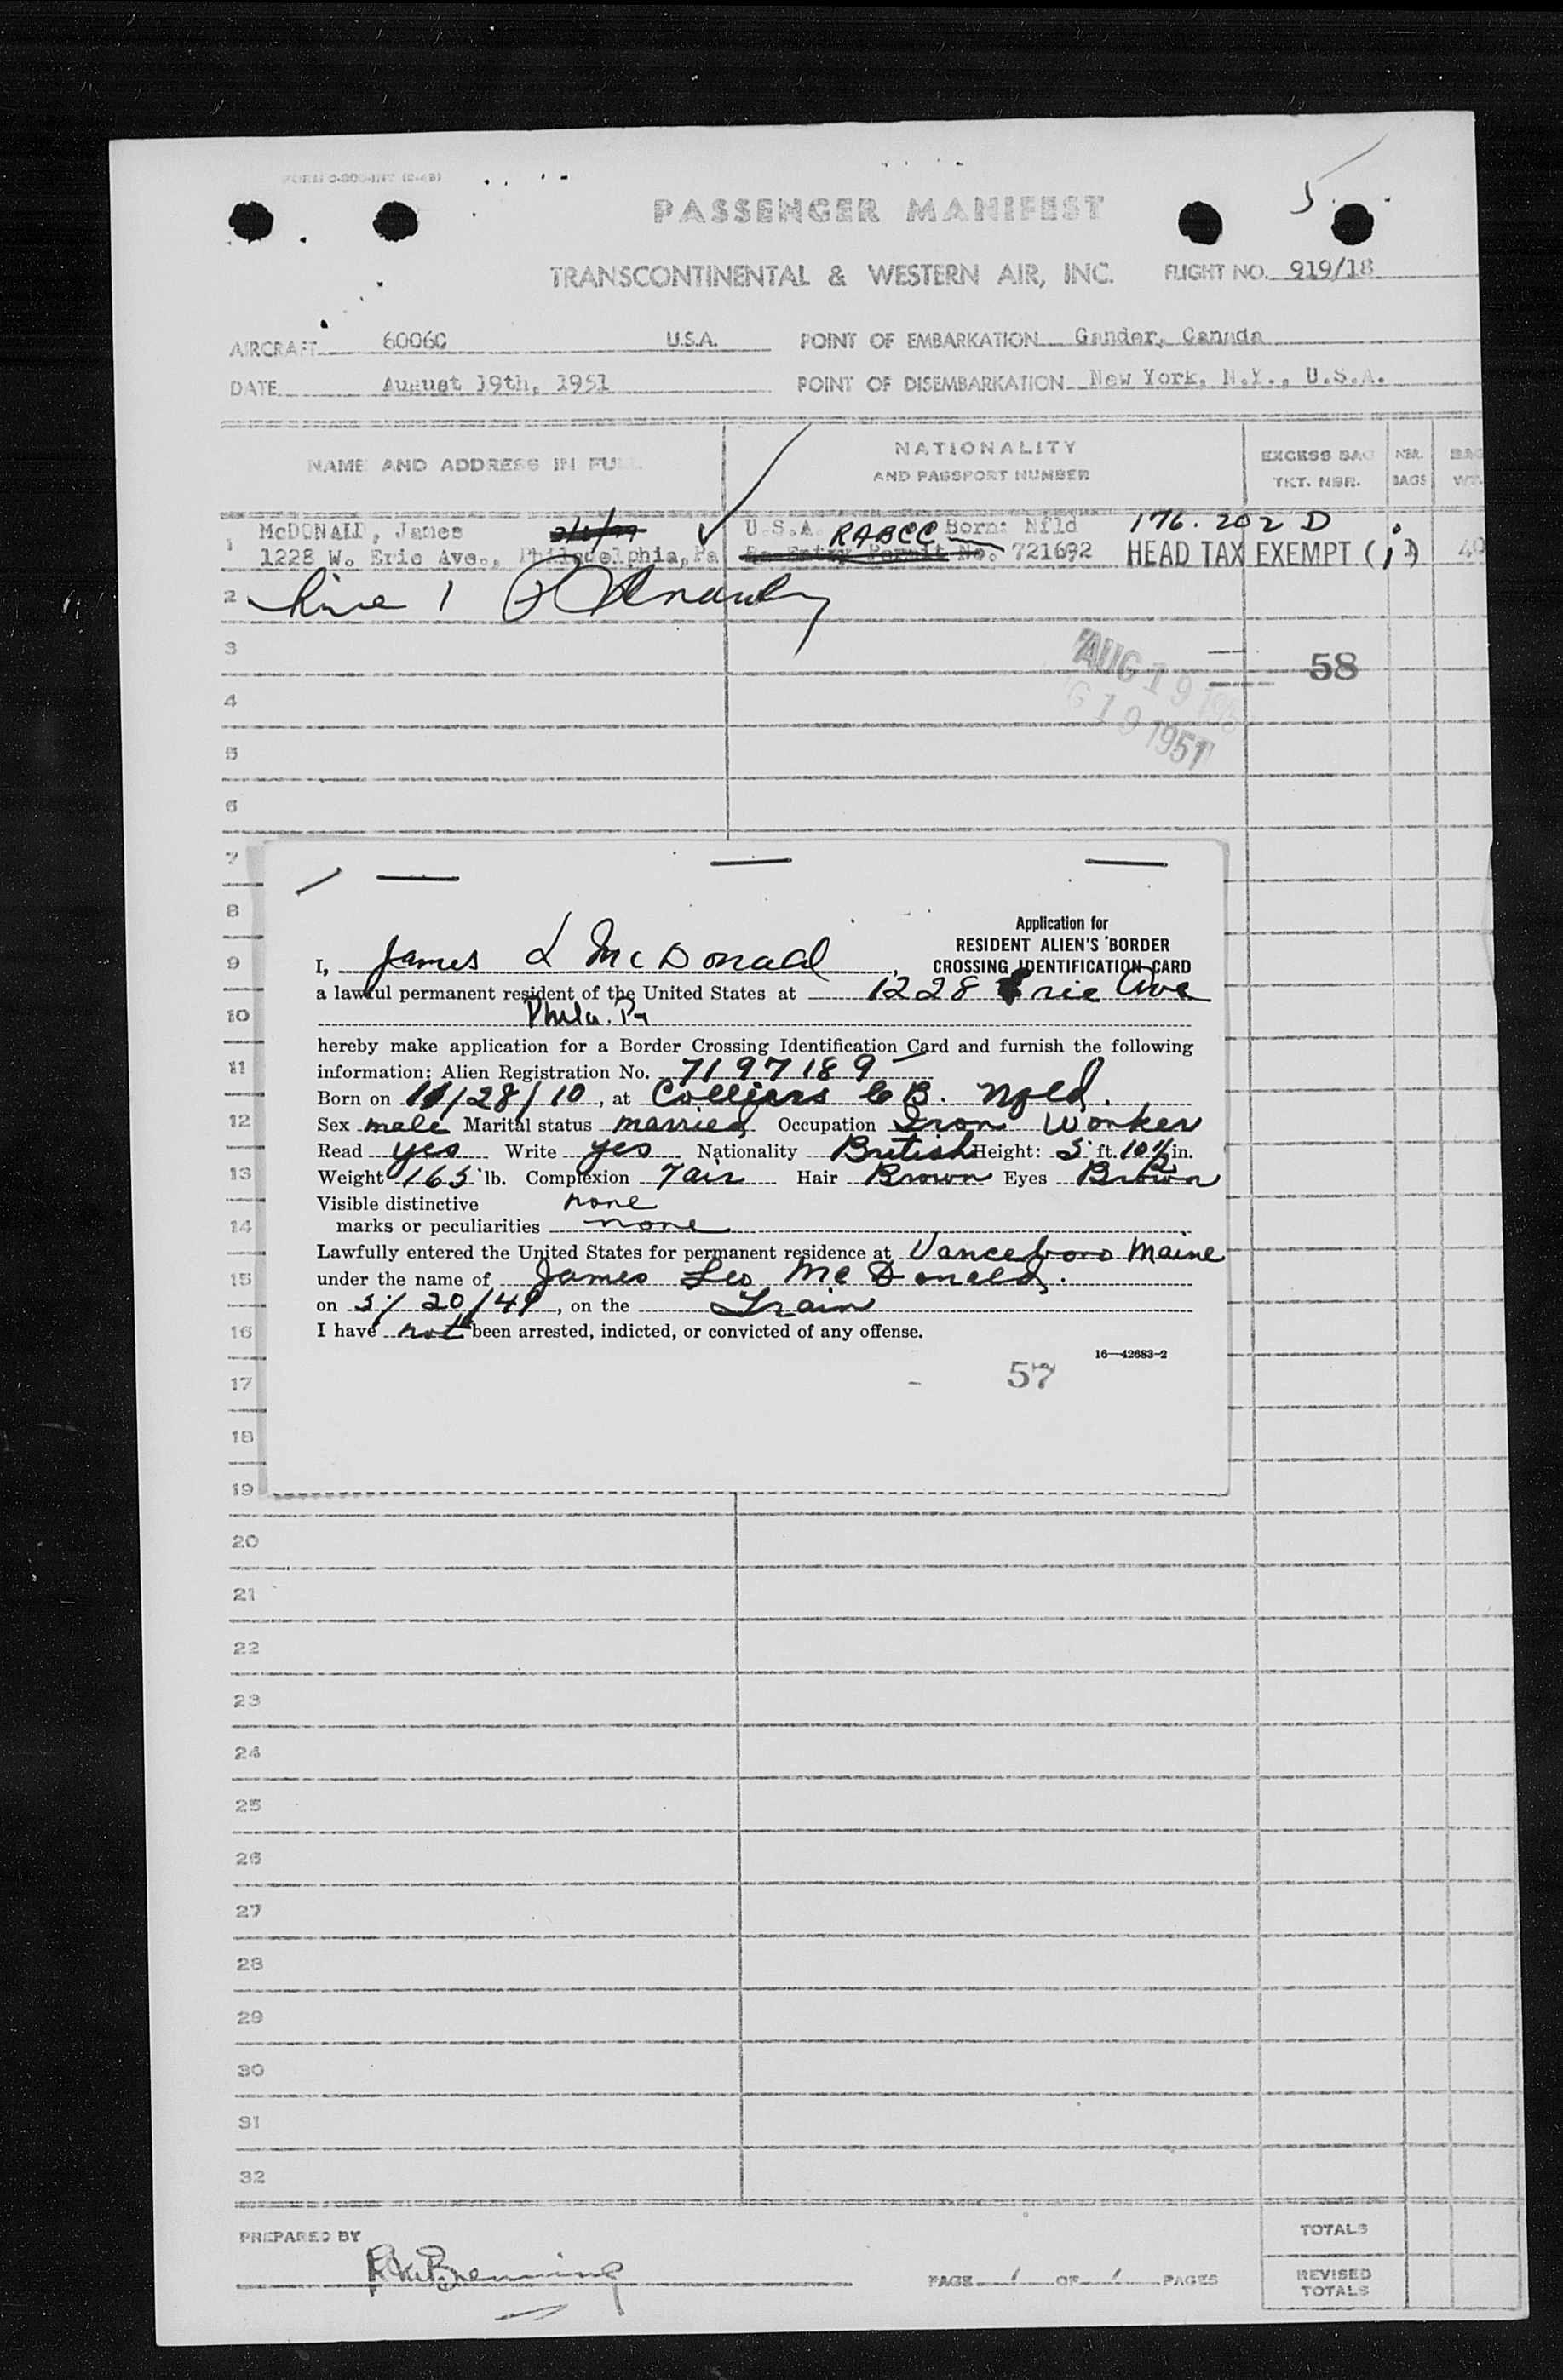 PASSENGER MANIFEST
5
TRANSCONTINENTAL & WESTERN AIR, INC. FLIGHT NO. 919/18
AIRCRAFT 6006C U.S.A. POINT OF EMBARKATION Gander, Canada
DATE August 19th, 1951 POINT OF DISEMBARKATION New York, N.Y., U.S.A.
NAME AND ADDRESS IN FULL NATIONALITY AND PASSPORT NUMBER EXCESS BAG TKT. NBR. NBR. BAGS BAG WT.
McDONALD, James U.S.A. RABCC Born: Nfld 176.202 D
1 1228 W. Erie Ave., Philadelphia, Pa Re-Entry Permit No. 721692 HEAD TAX EXEMPT ( 40
2 Line 1
3 AUG 19 58
4 G 19 1951
5
6
7
8
Application for
RESIDENT ALIEN'S BORDER
9 I, James L McDonald, CROSSING IDENTIFICATION CARD
a lawful permanent resident of the United States at 1228 Erie Ave
10 Phila. Pa
hereby make application for a Border Crossing Identification Card and furnish the following
11 information: Alien Registration No. 7197189
Born on 11/28/10, at Colliers C B. Nfld.
12 Sex male Marital status married Occupation Iron Worker
Read yes Write yes Nationality British Height: 5 ft. 10 1/2 in.
13 Weight 165 lb. Complexion Fair Hair Brown Eyes Brown
Visible distinctive none
14 marks or peculiarities none
Lawfully entered the United States for permanent residence at Vanceboro Maine
15 under the name of James Leo McDonald.
on 5/20/49, on the Train
16 I have not been arrested, indicted, or convicted of any offense.
16—42683-2
17 57
18
19
20
21
22
23
24
25
26
27
28
29
30
31
32
PREPARED BY TOTALS
PAGE 1 OF 1 PAGES REVISED TOTALS